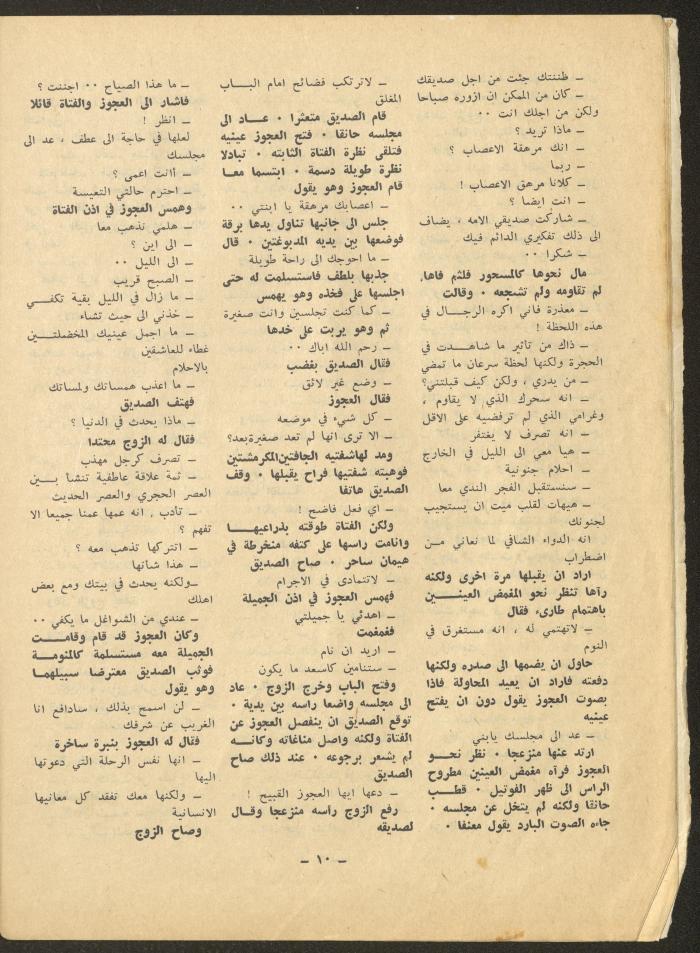 ـ ظننتك جئت من اجل صديقك
ـ كان من الممكن ان ازوره صباحا
ولكن من اجلك انت ٠٠
ـ ماذا تريد ؟
ـ انك مرهقة الاعصاب ؟
ـ ربما
ـ كلانا مرهق الاعصاب !
ـ انت ايضا ؟
ـ شاركت صديقي الامه ، يضاف
الى ذلك تفكيري الدائم فيك
ـ شكرا ٠٠
مال نحوها كالمسحور فلثم فاها.
لم تقاومه ولم تشجعه ٠ وقالت
ـ معذرة فاني اكره الرجال في
هذه اللحظة !
ـ ذاك من تاثير ما شاهدت في
الحجرة ولكنها لحظة سرعان ما تمضي
ـ من يدري ، ولكن كيف قبلتني؟
ـ انه سحرك الذي لا يقاوم ،
وغرامي الذي لم ترفضيه على الاقل
ـ انه تصرف لا يغتفر
ـ هيا معي الى الليل في الخارج
ـ احلام جنونية
ـ سنستقبل الفجر الندي معا
ـ هيهات لقلب ميت ان يستجيب
لجنونك
انه الدواء الشافي لما نعاني من
اضطراب
اراد ان يقبلها مرة اخرى ولكنه
رآها تنظر نحو المغمض العينين
باهتمام طارىء فقال
ـ لاتهتمي له ، انه مستغرق في
النوم
حاول ان يضمها الى صدره ولكنها
دفعته فاراد ان يعيد المحاولة فاذا
بصوت العجوز يقول دون ان يفتح
عينيه
ـ عد الى مجلسك يابني
ارتد عنها منزعجا ٠ نظر نحو
العجوز فرآه مغمض العينين مطروح
الراس الى ظهر الفوتيل ٠ قطب
حانقا ولكنه لم يتخل عن مجلسه ٠
جاءه الصوت البارد يقول معنفا ٠
ـ لاترتكب فضائح امام الباب
المغلق
قام الصديق متعثرا ٠ عاد الى
مجلسه حانقا ٠ فتح العجوز عينيه
فتلقى نظرة الفتاة الثابته ٠ تبادلا
نظرة طويلة دسمة ٠ ابتسما معا
قام العجوز وهو يقول
ـ اعصابك مرهقة يا ابنتي ٠٠
جلس الى جانبها تناول يدها برقة
فوضعها بين يديه المدبوغتين ٠ قال
ـ ما احوجك الى راحة طويلة
جذبها بلطف فاستسلمت له حتى
اجلسها على فخذه وهو يهمس
ـ كما كنت تجلسين وانت صغيرة
ثم وهو يربت على خدها
ـ رحم الله اباك ٠٠
فقال الصديق بغضب
ـ وضع غير لائق
فقال العجوز
ـ كل شيء في موضعه
ـ الا ترى انها لم تعد صغيرة بعد؟
ومد لها شفتيه الجافتين المكرمشتين
فوهبته شفتيها فراح يقبلها ٠ وقف
الصديق هاتفا
ـ اي فعل فاضح !
ولكن الفتاة طوقته بذراعيها
وانامت راسها على كتفه منخرطة في
هيمان ساحر ٠ صاح الصديق
ـ لاتتمادى في الاجرام
فهمس العجوز في اذن الجميلة
ـ اهدئي يا جميلتي
فغمغمت
ـ اريد ان نام
ـ ستنامين كاسعد ما يكون
وفتح الباب وخرج الزوج ٠ عاد
الى مجلسه واضعا راسه بين يدية ٠
توقع الصديق ان ينفصل العجوز عن
الفتاة ولكنه واصل مناغاته وكانه
لم يشعر برجوعه ٠ عند ذلك صاح
الصديق
ـ دعها ايها العجوز القبيح !
رفع الزوج راسه منزعجا وقال
لصديقه
ـ ما هذا الصياح ٠٠ اجننت ؟
فاشار الى العجوز والفتاة قائلا
ـ انظر !
لعلها في حاجة الى عطف ، عد الى
مجلسك
ـ أانت اعمى ؟
ـ احترم حالتي التعيسة
وهمس العجوز في اذن الفتاة
ـ هلمي نذهب معا
ـ الى اين ؟
ـ الى الليل ٠٠
ـ الصبح قريب
ـ ما زال في الليل بقية تكفي
ـ خذني الى حيث تشاء
ـ ما اجمل عينيك المخضلتين
غطاء للعاشقين
بالاحلام
ـ ما اعذب همساتك ولمساتك
فهتف الصديق
ـ ماذا يحدث في الدنيا ؟
فقال له الزوج محتدا
ـ تصرف كرجل مهذب
ـ ثمة علاقة عاطفية تنشا بين
العصر الحجري والعصر الحديث
ـ تأدب ، انه عمها عمنا جميعا الا
تفهم ؟
ـ اتتركها تذهب معه ؟
ـ هذا شانها
ـ ولكنه يحدث في بيتك ومع بعض
اهلك
ـ عندي من الشواغل ما يكفي ٠٠
وكان العجوز قد قام وقامت
الجميلة معه مستسلمة كالمنومة
فوثب الصديق معترضا سبيلهما
وهو يقول
ـ لن اسمح بذلك ، سادافع انا
الغريب عن شرفك
فقال له العجوز بنبرة ساخرة
ـ انها نفس الرحلة التي دعوتها
اليها
ـ ولكنها معك تفقد كل معانيها
الانسانية
وصاح الزوج
ـ ١٠ ـ